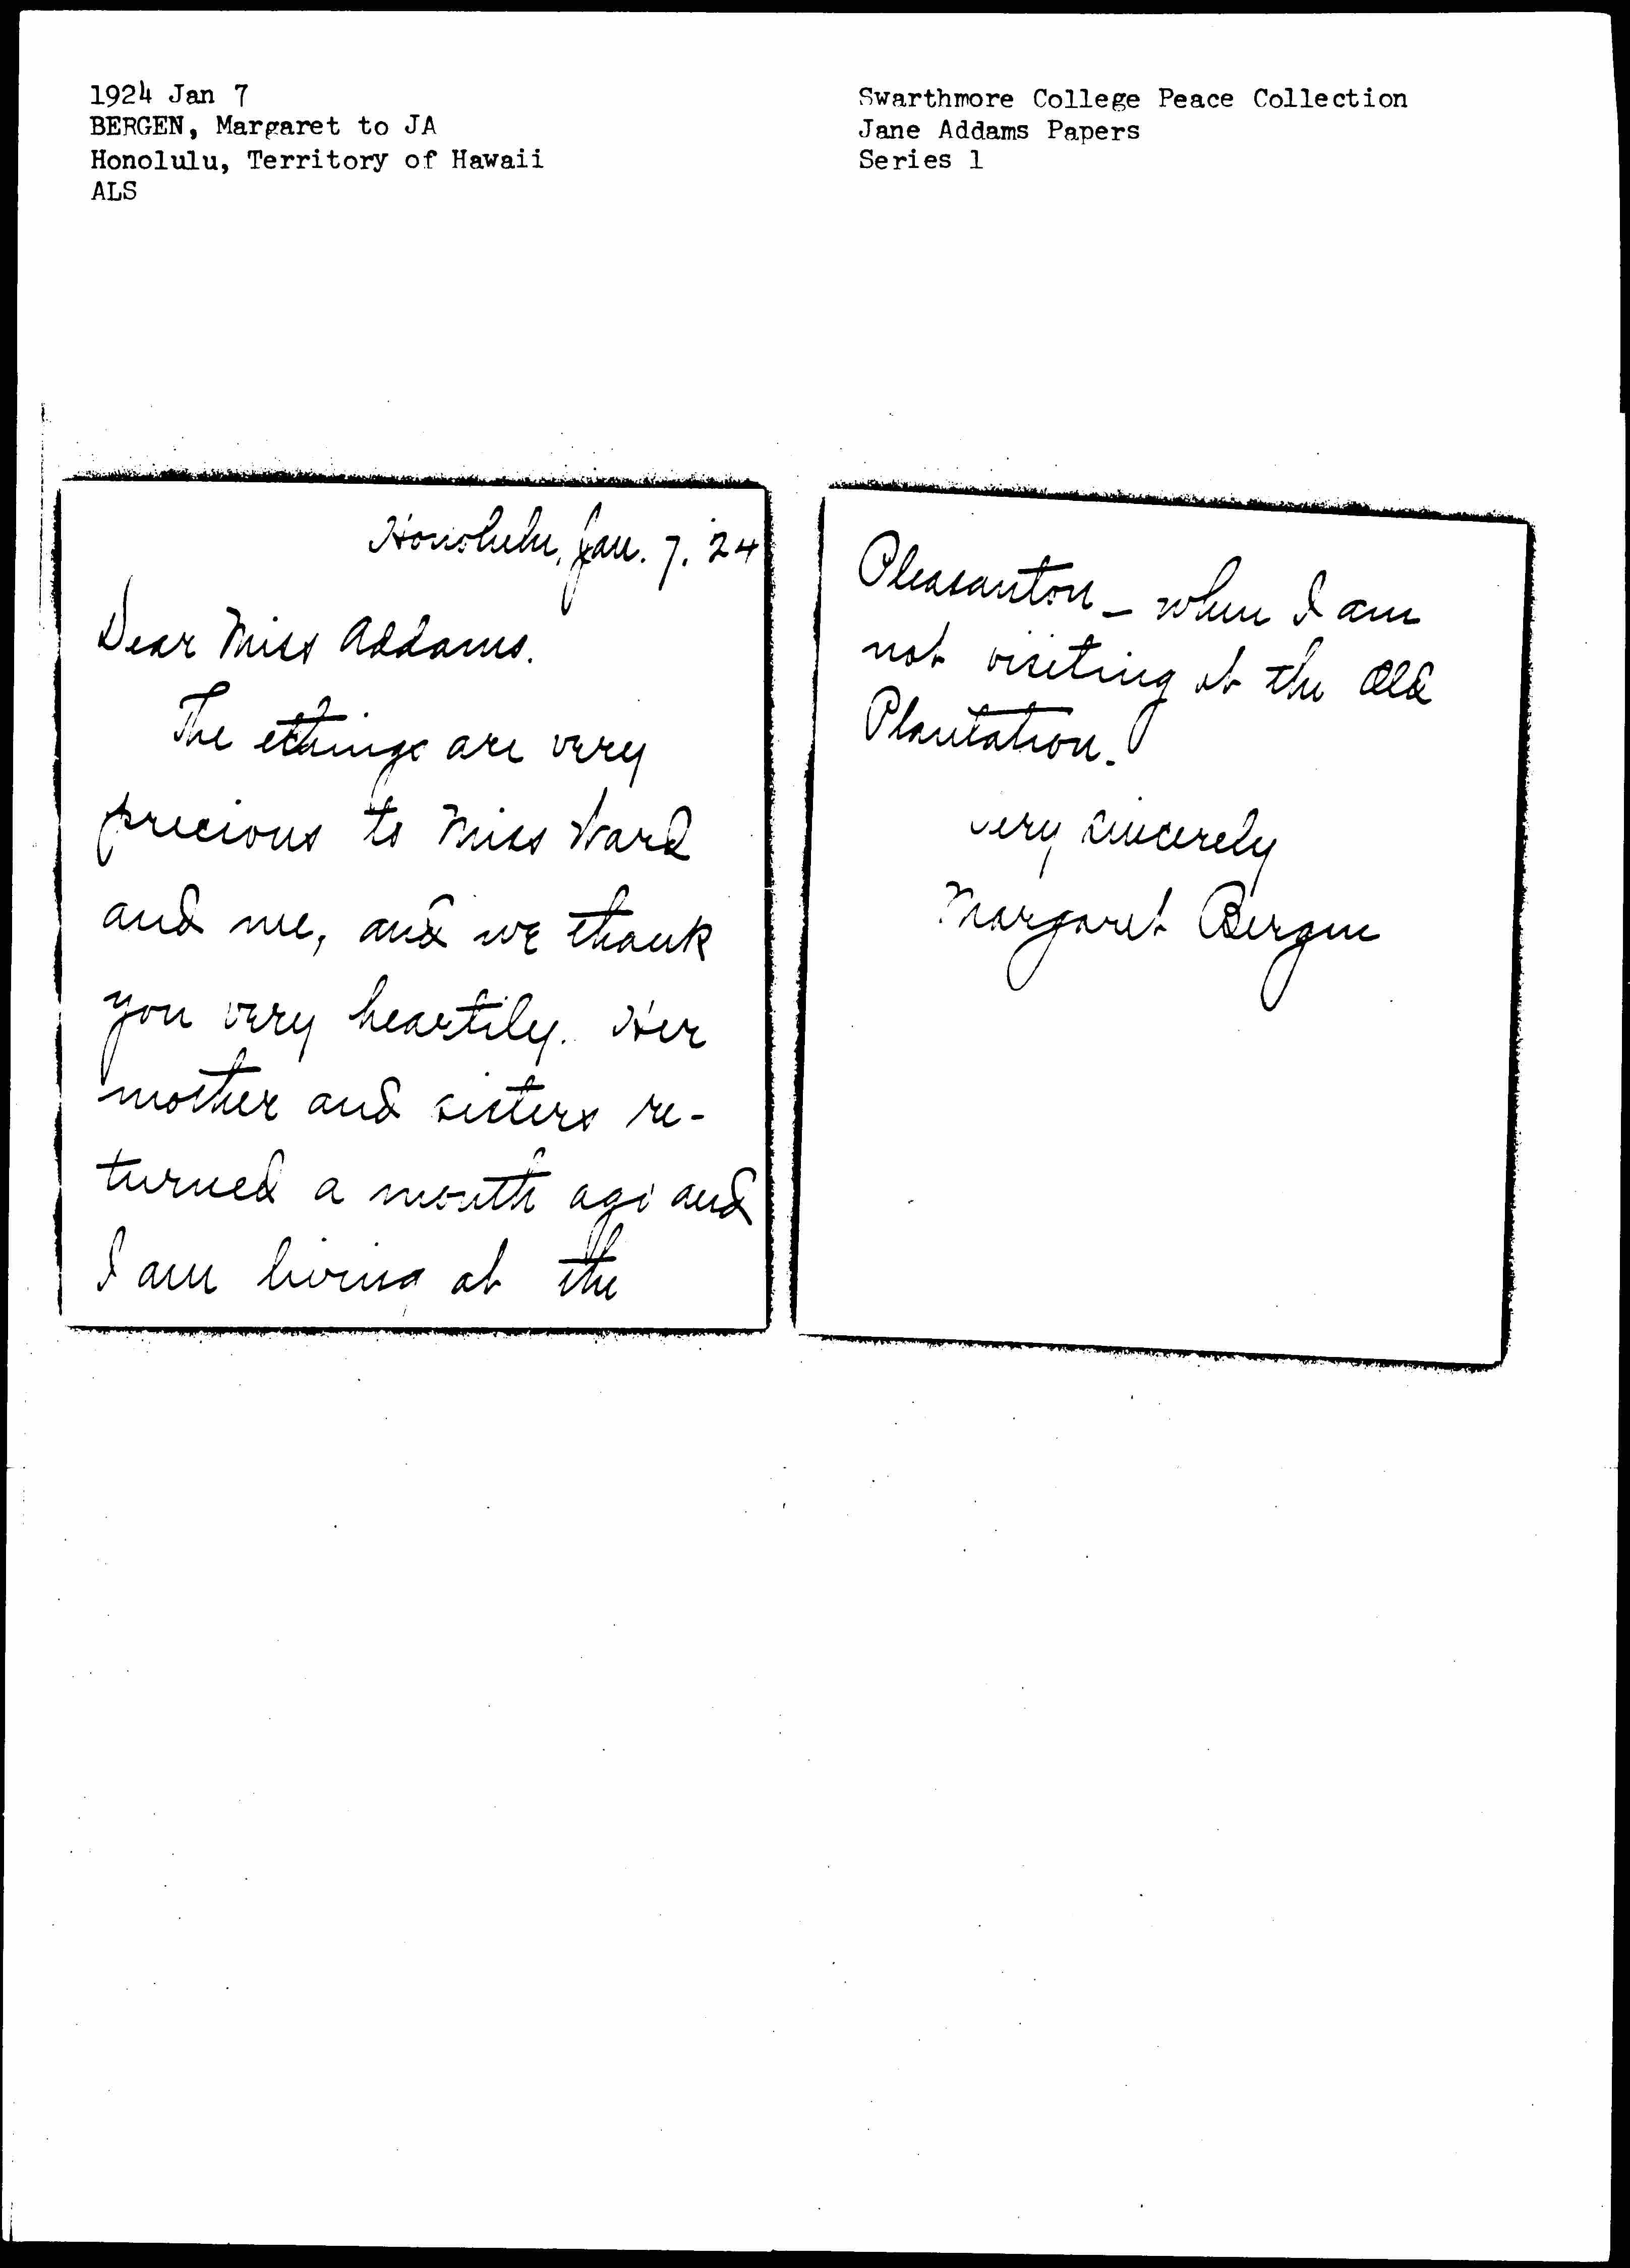 1924 Jan 7
BERGEN, Margaret to JA
Honolulu, Territory of Hawaii
ALS
Swarthmore College Peace Collection
Jane Addams Papers
Series 1
Honolulu, Jan. 7. '24
Dear Miss Addams.
The etchings are very
precious to Miss Ward
and me, and we thank
you very heartily. Her
mother and sisters re-
turned a month ago and
I am living at the
Pleasanton - when I am
not visiting at the Old
Plantation.
Very sincerely
Margaret Bergen